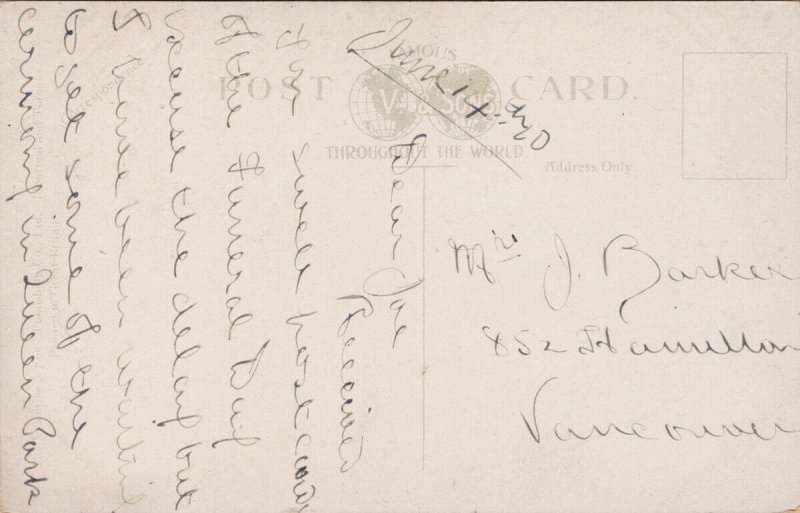 FAMOUS
POST CARD.
V. & Sons
THROUGHOUT THE WORLD
Address Only
Correspondence
June 14-
Dear Joe
Received
the swell post card
of the Funeral Day
Excuse the delay but
I have been waiting
to get some of the
ceremony in Queen Park
Mrs J. Barker
852 Hamilton
Vancouver